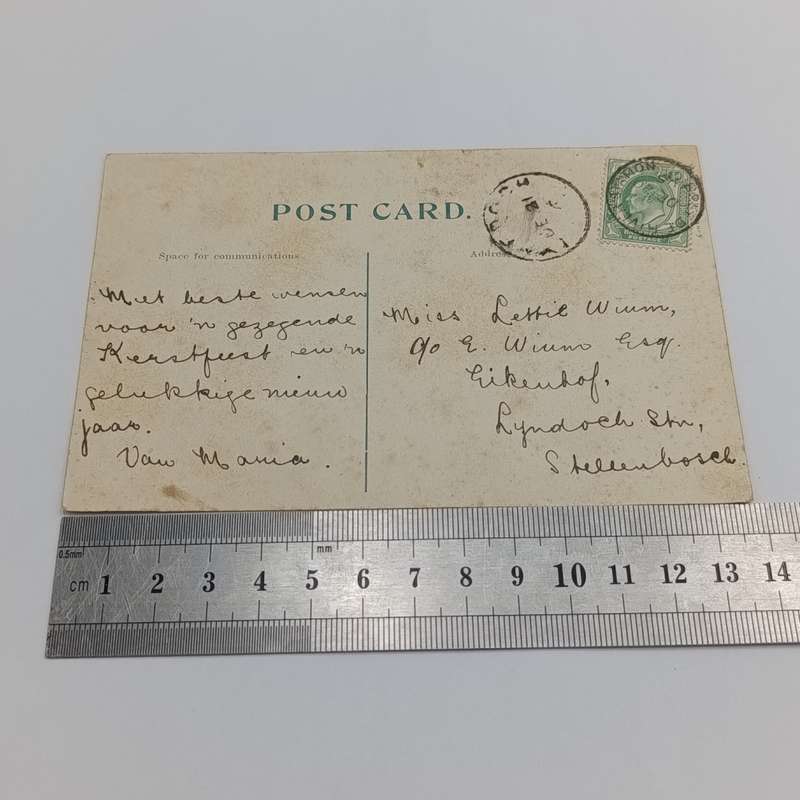 POST CARD.
Space for communications
Address
Met beste wensen
voor 'n gezegende
Kerstfeest en 'n
gelukkige nieuw
jaar.
Van Maria.
Miss Lettie Wium,
c/o E. Wium Esq.
Eikenhof,
Lyndoch Stn,
Stellenbosch.
0.5mm
mm
cm 1 2 3 4 5 6 7 8 9 10 11 12 13 14